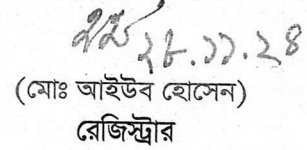 ২৮.১১.২৪
(মোঃ আইউব হোসেন)
রেজিস্ট্রার